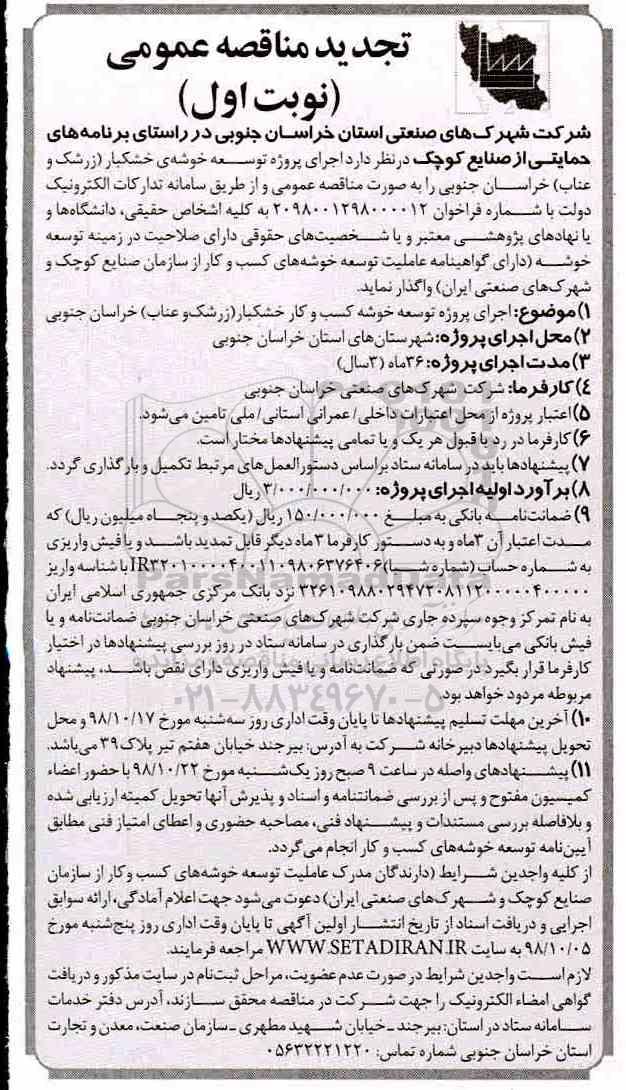 تجدید مناقصه عمومی
(نوبت اول)
شرکت شهرک‌های صنعتی استان خراسان جنوبی در راستای برنامه‌های
حمایتی از صنایع کوچک درنظر دارد اجرای پروژه توسعه خوشه‌ی خشکبار (زرشک و
عناب) خراسان جنوبی را به صورت مناقصه عمومی و از طریق سامانه تدارکات الکترونیک
دولت با شماره فراخوان ۲۰۹۸۰۰۱۲۹۸۰۰۰۰۱۲ به کلیه اشخاص حقیقی، دانشگاه‌ها و
یا نهادهای پژوهشی معتبر و یا شخصیت‌های حقوقی دارای صلاحیت در زمینه توسعه
خوشه (دارای گواهینامه عاملیت توسعه خوشه‌های کسب و کار از سازمان صنایع کوچک و
شهرک‌های صنعتی ایران) واگذار نماید.
۱) موضوع: اجرای پروژه توسعه خوشه کسب و کار خشکبار(زرشک‌و عناب) خراسان جنوبی
۲) محل اجرای پروژه: شهرستان‌های استان خراسان جنوبی
۳) مدت اجرای پروژه: ۳۶ماه (۳سال)
۴) کارفرما: شرکت شهرک‌های صنعتی خراسان جنوبی
۵) اعتبار پروژه از محل اعتبارات داخلی/ عمرانی استانی/ ملی تامین می‌شود.
۶) کارفرما در رد یا قبول هر یک و یا تمامی پیشنهادها مختار است.
۷) پیشنهادها باید در سامانه ستاد براساس دستورالعمل‌های مرتبط تکمیل و بارگذاری گردد.
۸) برآورد اولیه اجرای پروژه: ۳/۰۰۰/۰۰۰/۰۰۰ ریال
۹) ضمانت‌نامه بانکی به مبلغ ۱۵۰/۰۰۰/۰۰۰ ریال (یکصد و پنجاه میلیون ریال) که
مدت اعتبار آن ۳ماه و به دستور کارفرما ۳ماه دیگر قابل تمدید باشد و یا فیش واریزی
به شماره حساب (شماره شبا) IR۳۲۰۱۰۰۰۰۴۰۰۱۱۰۹۸۰۶۳۷۶۴۰۶ با شناسه واریز
۳۳۶۱۰۹۸۸۰۲۹۴۷۲۰۸۱۱۲۰۰۰۰۰۴۰۰۰۰۰ نزد بانک مرکزی جمهوری اسلامی ایران
به نام تمرکز وجوه سپرده جاری شرکت شهرک‌های صنعتی خراسان جنوبی ضمانت‌نامه و یا
فیش بانکی می‌بایست ضمن بارگذاری در سامانه ستاد در روز بررسی پیشنهادها در اختیار
کارفرما قرار بگیرد در صورتی که ضمانت‌نامه و یا فیش واریزی دارای نقص باشد، پیشنهاد
مربوطه مردود خواهد بود.
۱۰) آخرین مهلت تسلیم پیشنهادها تا پایان وقت اداری روز سه‌شنبه مورخ ۹۸/۱۰/۱۷ و محل
تحویل پیشنهادها دبیرخانه شرکت به آدرس: بیرجند خیابان هفتم تیر پلاک۳۹ می‌باشد.
۱۱) پیشنهادهای واصله در ساعت ۹ صبح روز یک‌شنبه مورخ ۹۸/۱۰/۲۲ با حضور اعضاء
کمیسیون مفتوح و پس از بررسی ضمانتنامه و اسناد و پذیرش آنها تحویل کمیته ارزیابی شده
و بلافاصله بررسی مستندات و پیشنهاد فنی، مصاحبه حضوری و اعطای امتیاز فنی مطابق
آیین‌نامه توسعه خوشه‌های کسب و کار انجام می‌گردد.
از کلیه واجدین شرایط (دارندگان مدرک عاملیت توسعه خوشه‌های کسب وکار از سازمان
صنایع کوچک و شهرک‌های صنعتی ایران) دعوت می‌شود جهت اعلام آمادگی، ارائه سوابق
اجرایی و دریافت اسناد از تاریخ انتشار اولین آگهی تا پایان وقت اداری روز پنج‌شنبه مورخ
۹۸/۱۰/۰۵ به سایت WWW.SETADIRAN.IR مراجعه فرمایند.
لازم‌است واجدین شرایط در صورت عدم عضویت، مراحل ثبت‌نام در سایت مذکور و دریافت
گواهی امضاء الکترونیک را جهت شرکت در مناقصه محقق سازند، آدرس دفتر خدمات
سامانه ستاد در استان: بیرجند ـ خیابان شهید مطهری ـ سازمان صنعت، معدن و تجارت
استان خراسان جنوبی شماره تماس: ۰۵۶۳۲۲۲۱۲۲۰
ParsNamadData
۰۲۱-۸۸۳۴۹۶۷۰-۵